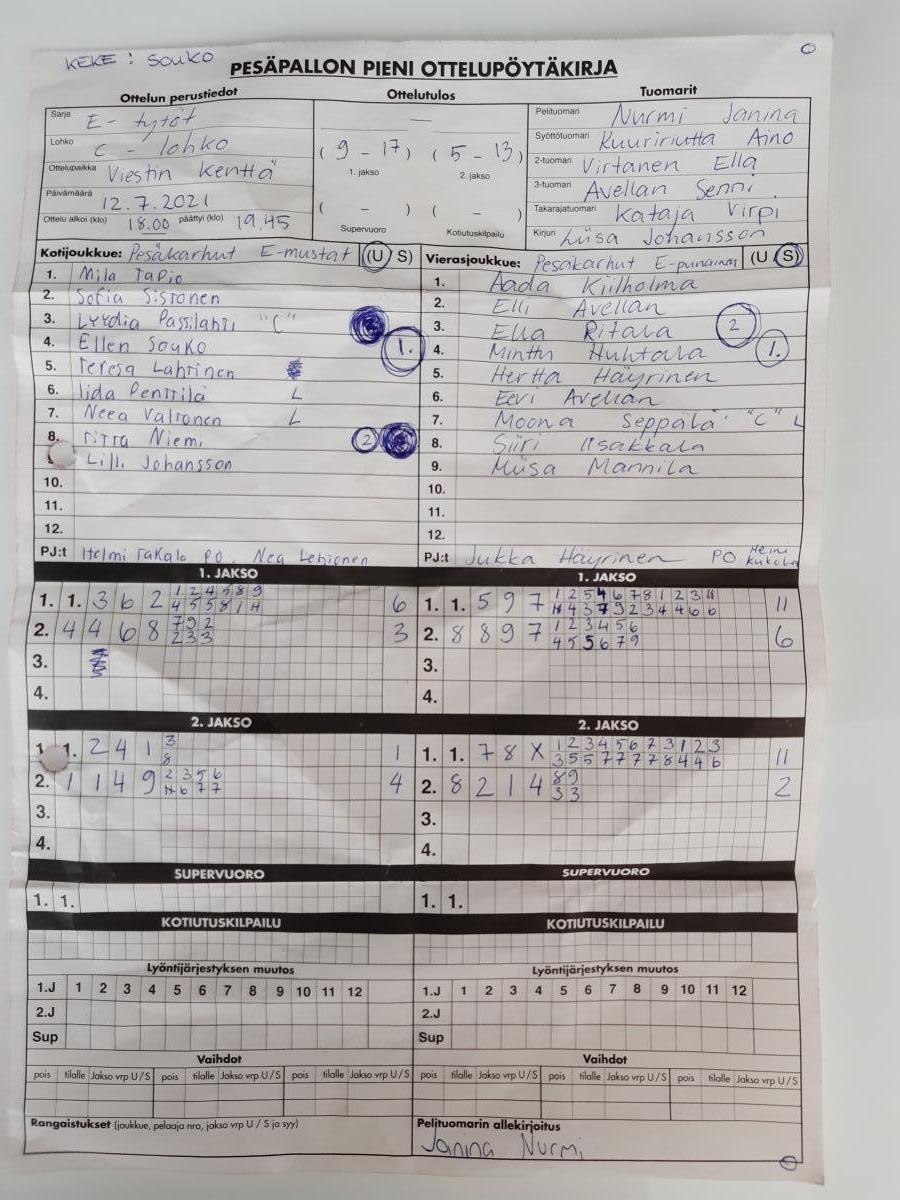 KEKE : SOUKO
PESÄPALLON PIENI OTTELUPÖYTÄKIRJA
Ottelun perustiedot
Ottelutulos
Tuomarit
Sarja E- tytöt
Lohko C - lohko
Ottelupaikka Viestin Kenttä
Päivämäärä 12.7.2021
Ottelu alkoi (klo) 18.00 päättyi (klo) 19.45
—
( 9 - 17 ) ( 5 - 13 )
1. jakso 2. jakso
( - ) ( - )
Supervuoro Kotiutuskilpailu
Pelituomari Nurmi Janina
Syöttötuomari Kuuririutta Aino
2-tuomari Virtanen Ella
3-tuomari Avellan Senni
Takarajatuomari Kataja Virpi
Kirjuri Liisa Johansson
Kotijoukkue: Pesäkarhut E-mustat (U S)
1. Mila Tapio
2. Sofia Sistonen
3. Lyydia Passilahti "C"
4. Ellen Souko 1.
5. Teresa Lahtinen
6. Iida Penttilä L
7. Neea Valtonen L
8. Niemi 2
Lilli Johansson
10.
11.
12.
PJ:t Helmi Takala PO Nea Lehtonen
Vierasjoukkue: Pesäkarhut E-punainen (U S)
1. Aada Kiilholma
2. Elli Avellan
3. Ella Ritala 2
4. Minttu Huhtala 1.
5. Hertta Häyrinen
6. Eevi Avellan
7. Moona Seppälä "C" L
8. Siiri Iisakkala
9. Miisa Mannila
10.
11.
12.
PJ:t Jukka Häyrinen PO Heini
1. JAKSO
1. 1. 3 6 2 1 2 4 5 8 9 6
4 5 5 8 1 H
2. 4 4 6 8 7 9 2 3
2 3 3
3.
4.
1. JAKSO
1. 1. 5 9 7 1 2 5 4 6 7 8 1 2 3 4 11
H 4 3 7 9 2 3 4 4 6 6
2. 8 8 9 7 1 2 3 4 5 6 6
4 5 5 6 7 9
3.
4.
2. JAKSO
1 1. 2 4 1 3 1
8
2. 1 1 4 9 2 3 5 6 4
H 6 7 7
3.
4.
2. JAKSO
1. 1. 7 8 X 1 2 3 4 5 6 7 3 1 2 3 11
3 5 5 7 7 7 7 8 4 4 6
2. 8 2 1 4 8 9 2
3 3
3.
4.
SUPERVUORO
1. 1.
SUPERVUORO
1. 1.
KOTIUTUSKILPAILU
KOTIUTUSKILPAILU
Lyöntijärjestyksen muutos
1.J 1 2 3 4 5 6 7 8 9 10 11 12
2.J
Sup
Lyöntijärjestyksen muutos
1.J 1 2 3 4 5 6 7 8 9 10 11 12
2.J
Sup
Vaihdot
pois tilalle Jakso vrp U/S pois tilalle Jakso vrp U/S pois tilalle Jakso vrp U/S
Vaihdot
pois tilalle Jakso vrp U/S pois tilalle Jakso vrp U/S pois tilalle Jakso vrp U/S
Rangaistukset (joukkue, pelaaja nro, jakso vrp U / S ja syy)
Pelituomarin allekirjoitus
Janina Nurmi